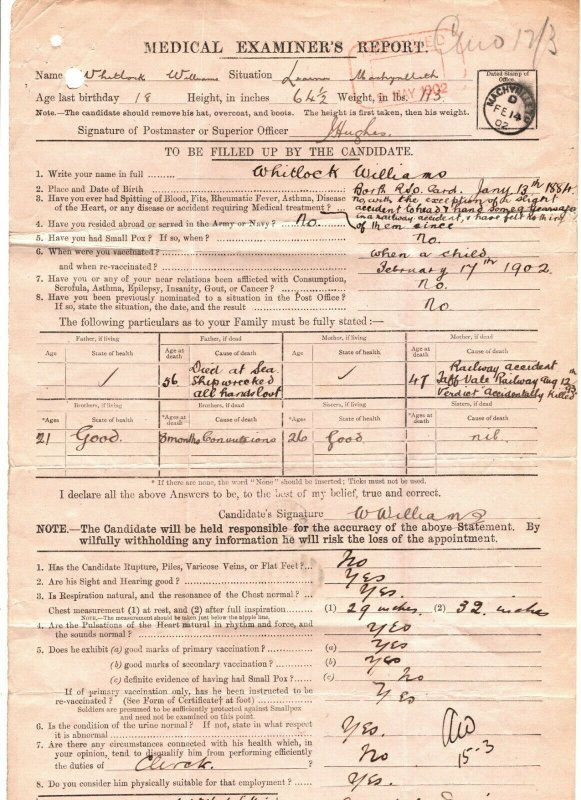 Cmo 12/3
MEDICAL EXAMINER'S REPORT.
Name Whitlock Williams Situation Learner Machynlleth
Dated Stamp of Office.
MACHYNLLETH
D
FE 14
02
MAY 1902
Age last birthday 18 Height, in inches 64½ Weight, in lbs. 113
Note.—The candidate should remove his hat, overcoat, and boots. The height is first taken, then his weight.
Signature of Postmaster or Superior Officer J Hughes.
TO BE FILLED UP BY THE CANDIDATE.
1. Write your name in full Whitlock Williams
2. Place and Date of Birth Borth R.S.O. Card. Jany 13th 1884.
3. Have you ever had Spitting of Blood, Fits, Rheumatic Fever, Asthma, Disease of the Heart, or any disease or accident requiring Medical treatment?
no, with the exception of a slight
accident to head & hand some 9 years ago
in a railway accident, & have felt nothing
of them since
4. Have you resided abroad or served in the Army or Navy? No.
5. Have you had Small Pox? If so, when? No.
6. When were you vaccinated? when a child
and when re-vaccinated? February 17th 1902.
7. Have you or any of your near relations been afflicted with Consumption, Scrofula, Asthma, Epilepsy, Insanity, Gout, or Cancer? No.
8. Have you been previously nominated to a situation in the Post Office? If so, state the situation, date, and the result No
The following particulars as to your Family must be fully stated:—
Father, if living Father, if dead Mother, if living Mother, if dead
Age State of health Age at death Cause of death Age State of health Age at death Cause of death
56 Died at Sea Shipwrecked all hands lost
47 Railway accident on Taff Vale Railway Aug 12 93 Verdict Accidentally Killed
Brothers, if living Brothers, if dead Sisters, if living Sisters, if dead
*Ages State of health *Ages at death Cause of death *Ages State of health *Ages at death Cause of death
21 Good. 3 months Convulsions 26 Good nil.
* If there are none, the word "None" should be inserted; Ticks must not be used.
I declare all the above Answers to be, to the best of my belief, true and correct.
Candidate's Signature W Williams
NOTE.—The Candidate will be held responsible for the accuracy of the above Statement. By
wilfully withholding any information he will risk the loss of the appointment.
1. Has the Candidate Rupture, Piles, Varicose Veins, or Flat Feet? No
2. Are his Sight and Hearing good? Yes
3. Is Respiration natural, and the resonance of the Chest normal? Yes.
Chest measurement (1) at rest, and (2) after full inspiration (1) 29 inches. (2) 32. inches
NOTE.—The measurement should be taken just below the nipple line.
4. Are the Pulsations of the Heart natural in rhythm and force, and the sounds normal? Yes
5. Does he exhibit (a) good marks of primary vaccination? (a) Yes
(b) good marks of secondary vaccination? (b) Yes
(c) definite evidence of having had Small Pox? (c) No
If of primary vaccination only, has he been instructed to be re-vaccinated? (See Form of Certificate† at foot) Yes
Soldiers are presumed to be sufficiently protected against Smallpox
and need not be examined on this point.
6. Is the condition of the urine normal? If not, state in what respect it is abnormal Yes.
7. Are there any circumstances connected with his health which, in
your opinion, tend to disqualify him from performing efficiently
the duties of Clerk. ? No
Cmo
15-3
8. Do you consider him physically suitable for that employment? Yes.